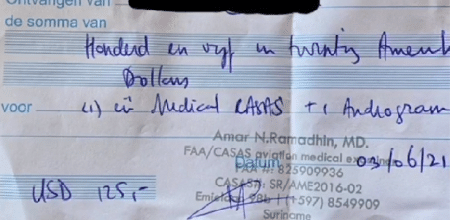 Ontvangen van
de somma van
Honderd en vijf en twintig Amerik
Dollars
voor (1) één Medical CASAS + 1 Audiogram
Amar N.Ramadhin, MD.
FAA/CASAS aviation medical examiner
Datum 03/06/21
FAA #: 825909936
CASAS#: SR/AME2016-02
(+597) 8549909
USD 125,-
Suriname